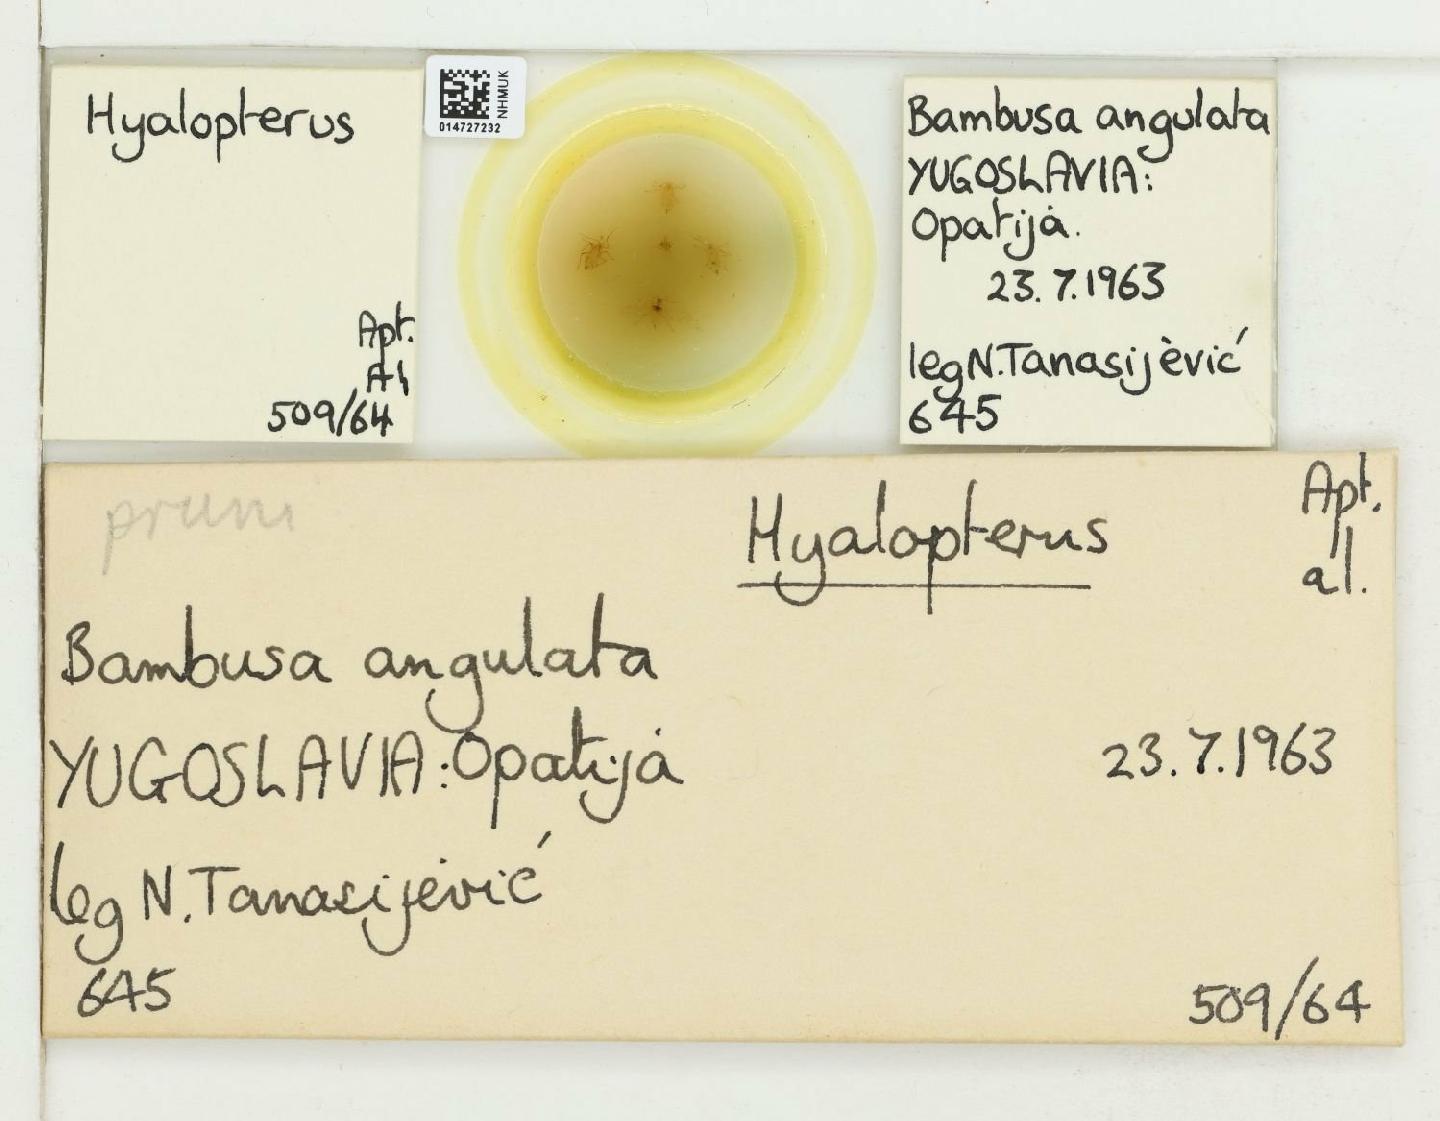 Hyalopterus
Apt.
Al
509/64
NHMUK
014727232
Bambusa angulata
YUGOSLAVIA:
Opatija.
23.7.1963
leg N.Tanasijèvić
645
pruni
Hyalopterus
Apt.
al.
Bambusa angulata
YUGOSLAVIA: Opatija
23.7.1963
leg N.Tanasijėvić
645
509/64